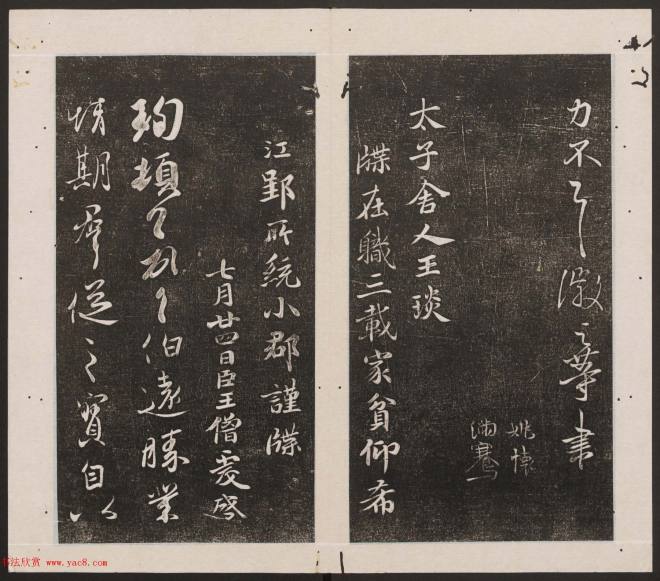 力不一一徽之等書
姚懷
滿騫
太子舍人王琰
牒在職三載家貧仰希
江郢所統小郡謹牒
七月廿四日臣王僧虔啓
珣頓首頓首伯遠勝業
情期群從之寶自以
书法欣赏 www.yac8.com